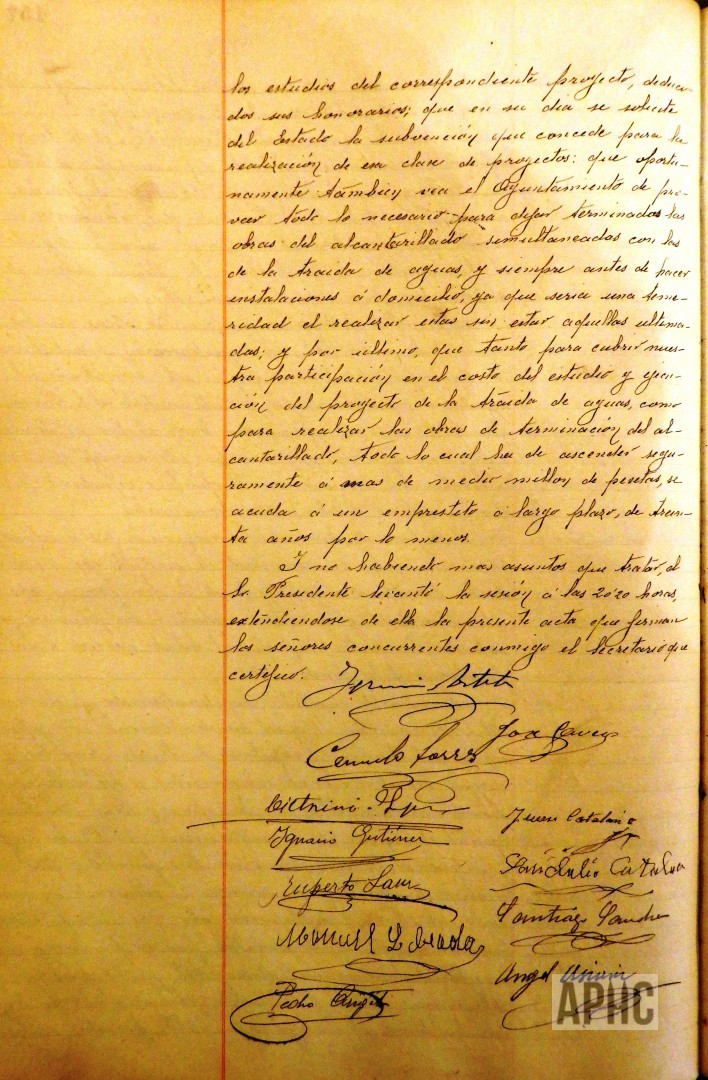 los estudios del correspondiente proyecto, deduci-
dos sus honorarios; que en su dia se solicite
del Estado la subvención que concede para la
realización de esa clase de proyectos: que oportu-
namente tambien vea el Ayuntamiento de pro-
veer todo lo necesario para dejar terminadas las
obras del alcantarillado simultaneadas con las
de la traida de aguas, y siempre antes de hacer
instalaciones á domicilio, ya que seria una teme-
ridad el realizar estas sin estar aquellas ultima-
das; y por último, que tanto para cubrir nues-
tra participación en el costo del estudio y ejecu-
ción del proyecto de la traida de aguas, como
para realizar las obras de terminación del al-
cantarillado, todo lo cual ha de ascender segu-
ramente á mas de medio millon de pesetas, se
acuda á un emprestito á largo plazo, de trein-
ta años por lo menos.
Y no habiendo mas asuntos que tratar, el
Sr. Presidente levantó la sesión á las 20'20 horas,
extendiendose de ella la presente acta que firman
los señores concurrentes conmigo el Secretario que
certifico.
Camilo Torres
Juan Catalán
Ignacio Gutierrez
José Julio Catalan
Ruperto
Santiago Sancho
Manuel
Angel
Pedro
APHC